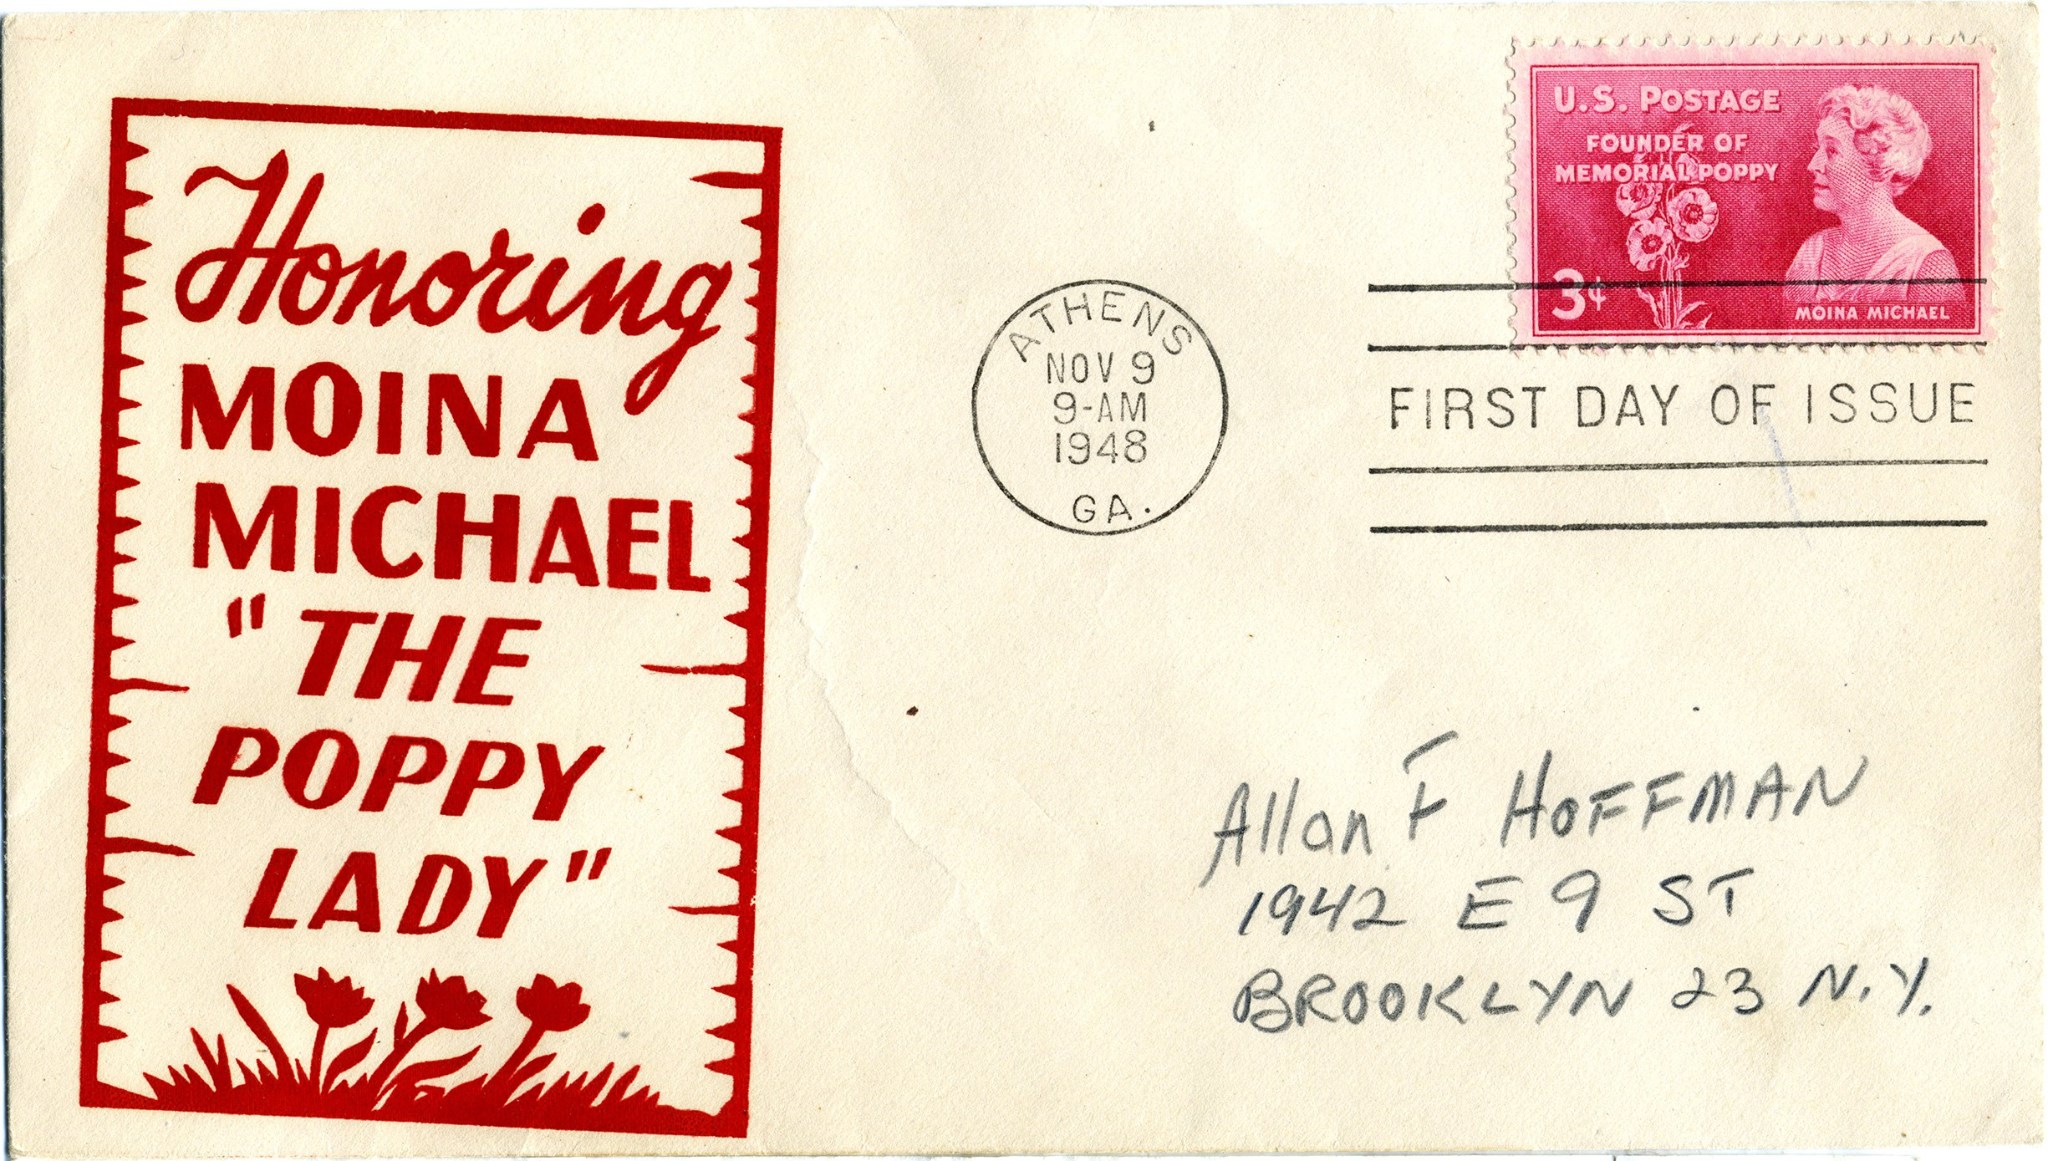 Honoring
MOINA
MICHAEL
"THE
POPPY
LADY"
U.S. POSTAGE
FOUNDER OF
MEMORIAL POPPY
3¢
MOINA MICHAEL
ATHENS
NOV 9
9-AM
1948
GA.
FIRST DAY OF ISSUE
Allan F HOFFMAN
1942 E 9 ST
BROOKLYN 23 N.Y.